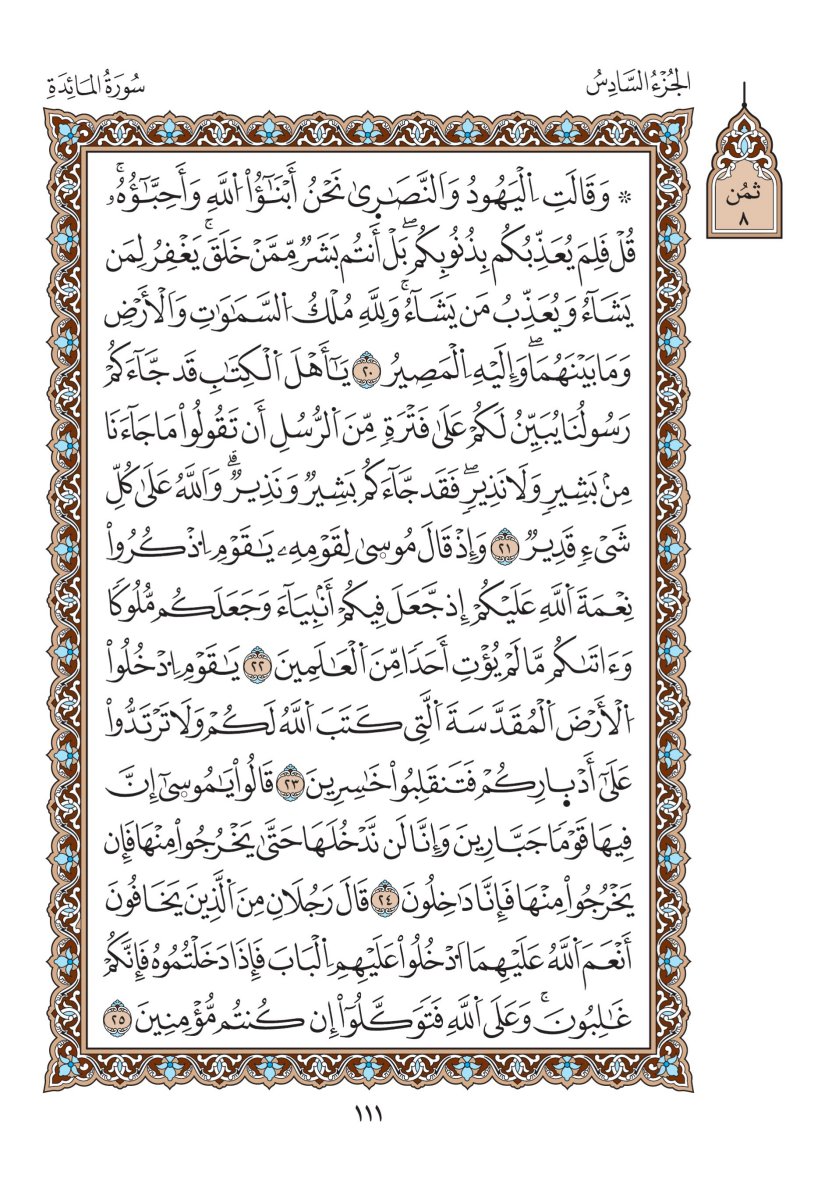 الجُزْءُ السَّادِسُ
سُورَةُ المَائِدَةِ
ثُمُن
٨
۞ وَقَالَتِ اِ۬لْيَهُودُ وَالنَّصَٰر۪ىٰ نَحْنُ أَبْنَٰٓؤُاْ اُ۬للَّهِ وَأَحِبَّٰٓؤُهُۥۚ
قُلْ فَلِمَ يُعَذِّبُكُم بِذُنُوبِكُمۖ بَلْ أَنتُم بَشَرٞ مِّمَّنْ خَلَقَۚ يَغْفِر لِّمَن
يَشَآءُ وَيُعَذِّبُ مَن يَشَآءُۚ وَلِلَّهِ مُلْكُ اُ۬لسَّمَٰوَٰتِ وَالْأَرْضِ
وَمَا بَيْنَهُمَاۖ وَإِلَيْهِ اِ۬لْمَصِيرُ ٢٠ يَٰٓأَهْلَ اَ۬لْكِتَٰبِ قَد جَّآءَكُمْ
رَسُولُنَا يُبَيِّنُ لَكُمْ عَلَىٰ فَتْرَةٖ مِّنَ اَ۬لرُّسُلِ أَن تَقُولُواْ مَا جَآءَنَا
مِنۢ بَشِيرٖ وَلَا نَذِيرٖۖ فَقَد جَّآءَكُم بَشِيرٞ وَنَذِيرٞۗ وَاللَّهُ عَلَىٰ كُلِّ
شَيْءٖ قَدِيرٞ ٢١ وَإِذْ قَالَ مُوس۪ىٰ لِقَوْمِهِۦ يَٰقَوْمِ اِ۟ذْكُرُواْ
نِعْمَةَ اَ۬للَّهِ عَلَيْكُمْ إِذ جَّعَلَ فِيكُمْ أَنۢبِيَآءَ وَجَعَلَكُم مُّلُوكٗا
وَءَاتَىٰكُم مَّا لَمْ يُؤْتِ أَحَدٗا مِّنَ اَ۬لْعَٰلَمِينَ ٢٢ يَٰقَوْمِ اِ۟دْخُلُواْ
اُ۬لْأَرْضَ اَ۬لْمُقَدَّسَةَ اَ۬لَّتِي كَتَبَ اَ۬للَّهُ لَكُمْ وَلَا تَرْتَدُّواْ
عَلَىٰٓ أَدْبٰ۪رِكُمْ فَتَنقَلِبُواْ خَٰسِرِينَ ٢٣ قَالُواْ يَٰمُوس۪ىٰٓ إِنَّ
فِيهَا قَوْمٗا جَبَّارِينَ وَإِنَّا لَن نَّدْخُلَهَا حَتَّىٰ يَخْرُجُواْ مِنْهَا فَإِن
يَخْرُجُواْ مِنْهَا فَإِنَّا دَٰخِلُونَ ٢٤ قَالَ رَجُلَانِ مِنَ اَ۬لَّذِينَ يَخَافُونَ
أَنْعَمَ اَ۬للَّهُ عَلَيْهِمَا اَ۟دْخُلُواْ عَلَيْهِمِ اِ۬لْبَابَ فَإِذَا دَخَلْتُمُوهُ فَإِنَّكُمْ
غَٰلِبُونَۚ وَعَلَى اَ۬للَّهِ فَتَوَكَّلُوٓاْ إِن كُنتُم مُّؤْمِنِينَ ٢٥
١١١